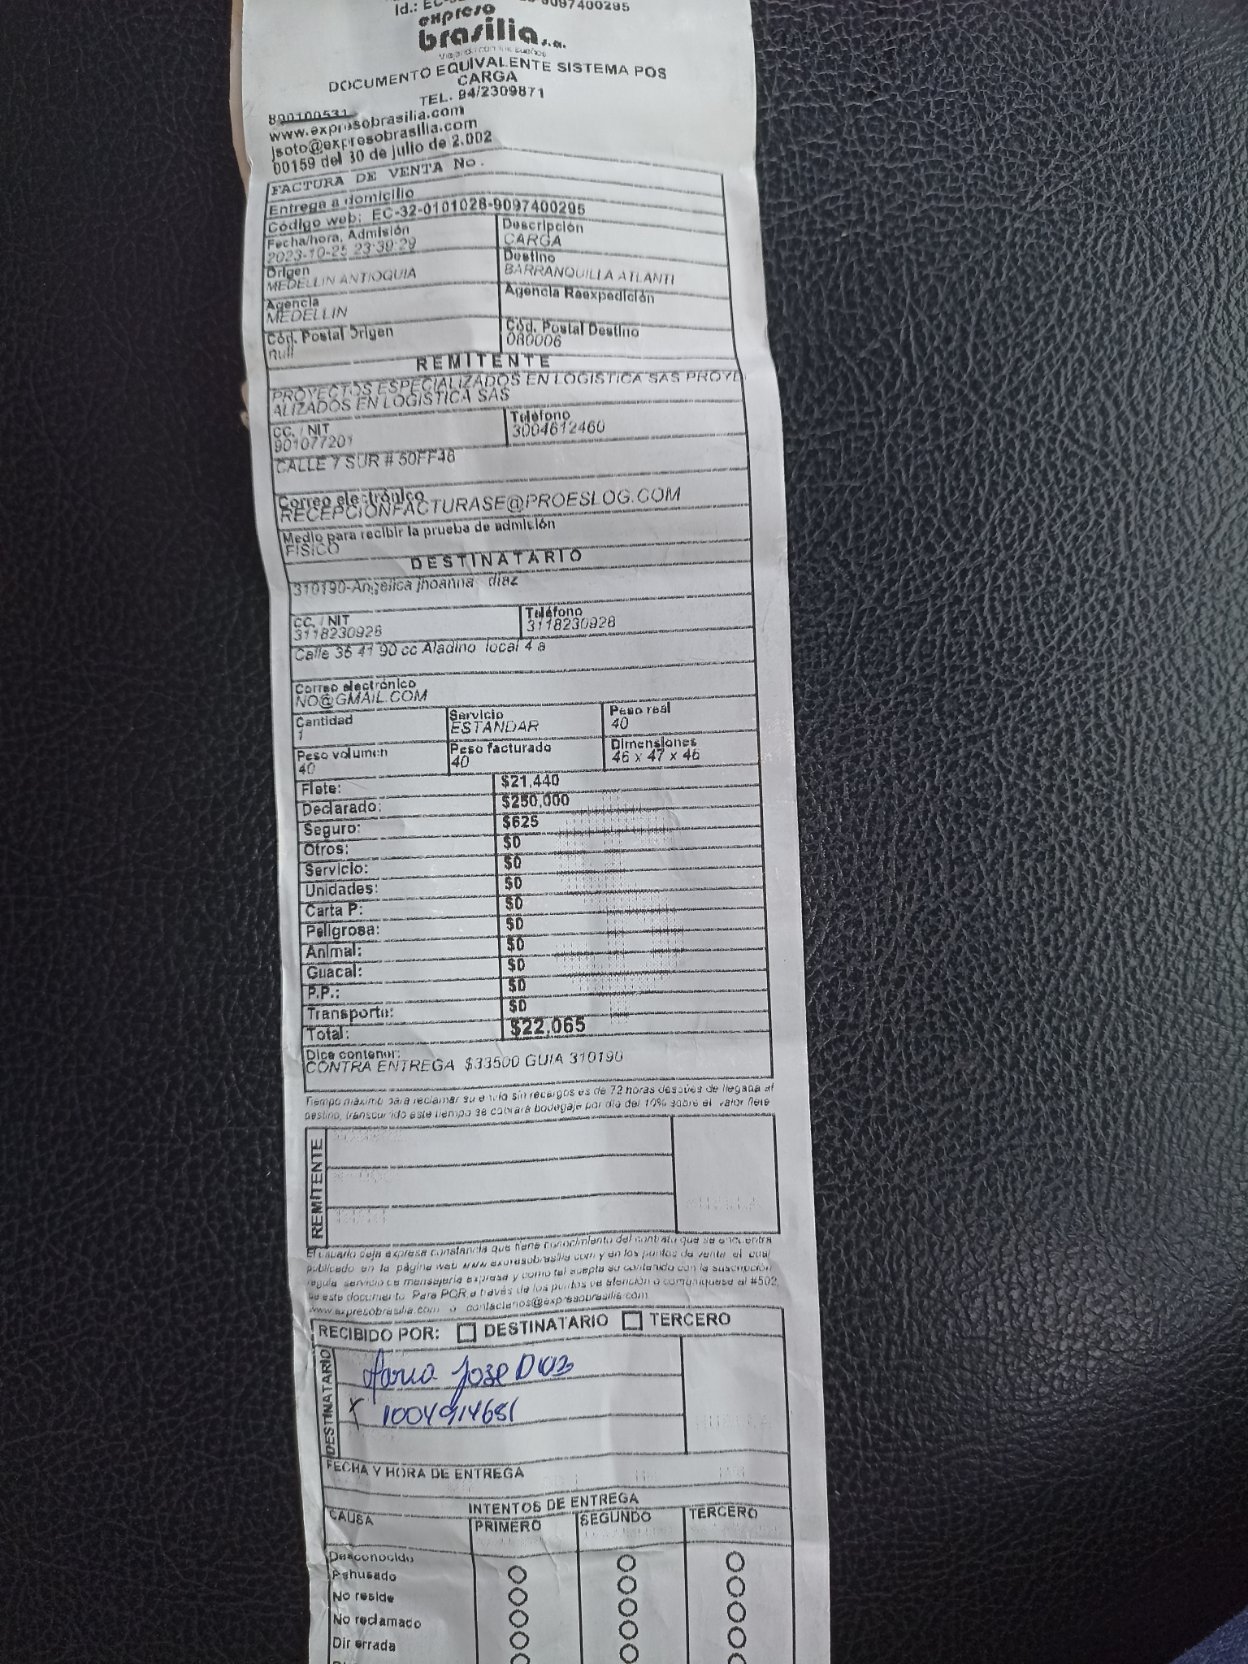 Id.: EC-32-0101028-9097400295
expreso
brasilia s.a.
DOCUMENTO EQUIVALENTE SISTEMA POS
CARGA
TEL. 94/2309871
890100531
www.expresobrasilia.com
jsoto@expresobrasilia.com
00159 del 30 de julio de 2.002
FACTURA DE VENTA No.
Entrega a domicilio
Código web: EC-32-0101028-9097400295
Fecha/hora, Admisión
2023-10-25 23:39:29
Descripción
CARGA
Origen
MEDELLIN ANTIOQUIA
Destino
BARRANQUILLA ATLANTI
Agencia
MEDELLIN
Agencia Reexpedición
Cód. Postal Origen
null
Cód. Postal Destino
080006
REMITENTE
PROYECTOS ESPECIALIZADOS EN LOGISTICA SAS PROYE
ALIZADOS EN LOGISTICA SAS
CC. / NIT
901077201
Teléfono
3004612460
CALLE 7 SUR # 50FF48
Correo electrónico
RECEPCIONFACTURASE@PROESLOG.COM
Medio para recibir la prueba de admisión
FISICO
DESTINATARIO
310190-Angelica jhoanna diaz
CC. / NIT
3118230928
Teléfono
3118230928
Calle 35 41 90 cc Aladino local 4 a
Correo electrónico
NO@GMAIL.COM
Cantidad
1
Servicio
ESTANDAR
Peso real
40
Peso volumen
40
Peso facturado
40
Dimensiones
46 x 47 x 46
Flete: $21,440
Declarado: $250,000
Seguro: $625
Otros: $0
Servicio: $0
Unidades: $0
Carta P: $0
Peligrosa: $0
Animal: $0
Guacal: $0
P.P.: $0
Transporte: $0
Total: $22,065
Dice contener:
CONTRA ENTREGA $33500 GUIA 310190
Tiempo máximo para reclamar su envío sin recargos es de 72 horas después de llegada al
destino, transcurrido este tiempo se cobrará bodegaje por día del 10% sobre el valor flete
REMITENTE
El usuario deja expresa constancia que tiene conocimiento del contrato que se encuentra
publicado en la página web www.expresobrasilia.com y en los puntos de venta, el cual
regula servicio de mensajería expresa y como tal acepta su contenido con la suscripción
de este documento. Para PQR a través de los puntos de atención o comuníquese al #502,
www.expresobrasilia.com o contactenos@expresobrasilia.com
RECIBIDO POR: DESTINATARIO TERCERO
DESTINATARIO
Maria Jose Diaz
X 1004914681
FECHA Y HORA DE ENTREGA
INTENTOS DE ENTREGA
CAUSA PRIMERO SEGUNDO TERCERO
Desconocido
Rehusado
No reside
No reclamado
Dir errada